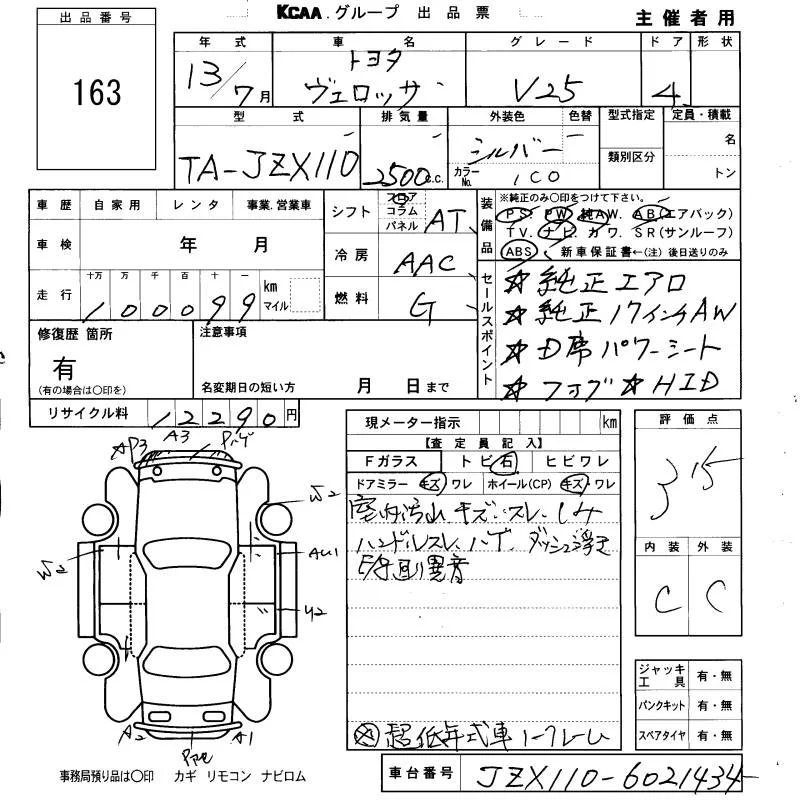 KCAA.グループ 出品票
主催者用
出品番号
163
年式 車名 グレード ドア 形状
13/7月 トヨタ ヴェロッサ V25 4
型式 排気量 外装色 色替 型式指定 定員・積載
TA-JZX110 2500c.c. シルバー カラーNo. 1C0 類別区分 名 トン
車歴 自家用 レンタ 事業.営業車
車検 年 月
走行 十万 万 千 百 十 一
100099 km マイル
シフト フロア コラム パネル AT
冷房 AAC
燃料 G
装備品 ※純正のみ○印をつけて下さい。
PS PW 純AW. AB(エアバック)
TV. ナビ. カワ. SR(サンルーフ)
ABS 新車保証書←(注) 後日送りのみ
セールスポイント
☆純正エアロ
☆純正17インチAW
☆D席パワーシート
☆フォグ☆HID
修復歴 箇所
有
(有の場合は○印を)
注意事項
名変期日の短い方 月 日まで
リサイクル料 12290円
現メーター指示 km
【査定員記入】
Fガラス トビ石 ヒビワレ
ドアミラー キズ ワレ ホイール(CP) キズ・ワレ
室内汚れ キズ.スレ.シミ
ハンドルスレ.ハゲ.ダッシュ浮き
異音
超低年式車 ノークレーム
評価点
3.5
内装 外装
C C
AP3 A3
W2
AU1
W2
U2
A2 A1
ジャッキ工具 有・無
パンクキット 有・無
スペアタイヤ 有・無
事務局預り品は○印 カギ リモコン ナビロム
車台番号 JZX110-6021434